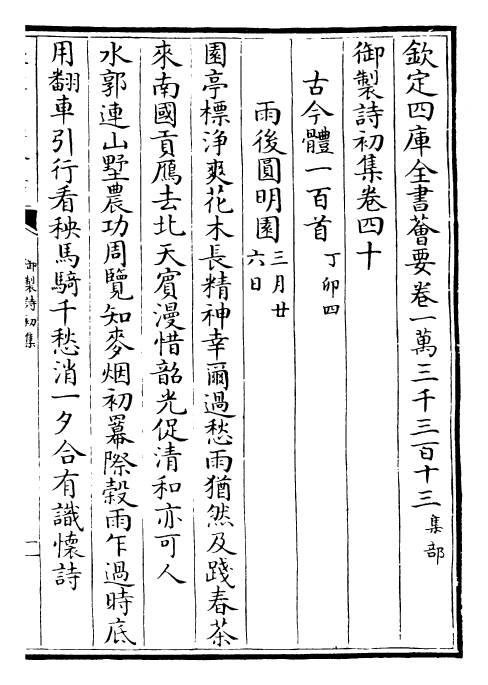 欽定四庫全書薈要卷一萬三千三百十三集部
御製詩初集卷四十
古今體一百首丁卯四
雨後圓明園三月廿六日
園亭標淨爽花木長精神幸爾過愁雨猶然及踐春茶
來南國貢鴈去北天賓漫惜韶光促清和亦可人
水郭連山墅農功周覽知麥烟初羃際穀雨乍過時底
用翻車引行看秧馬騎千愁消一夕合有識懷詩
御製詩初集
一